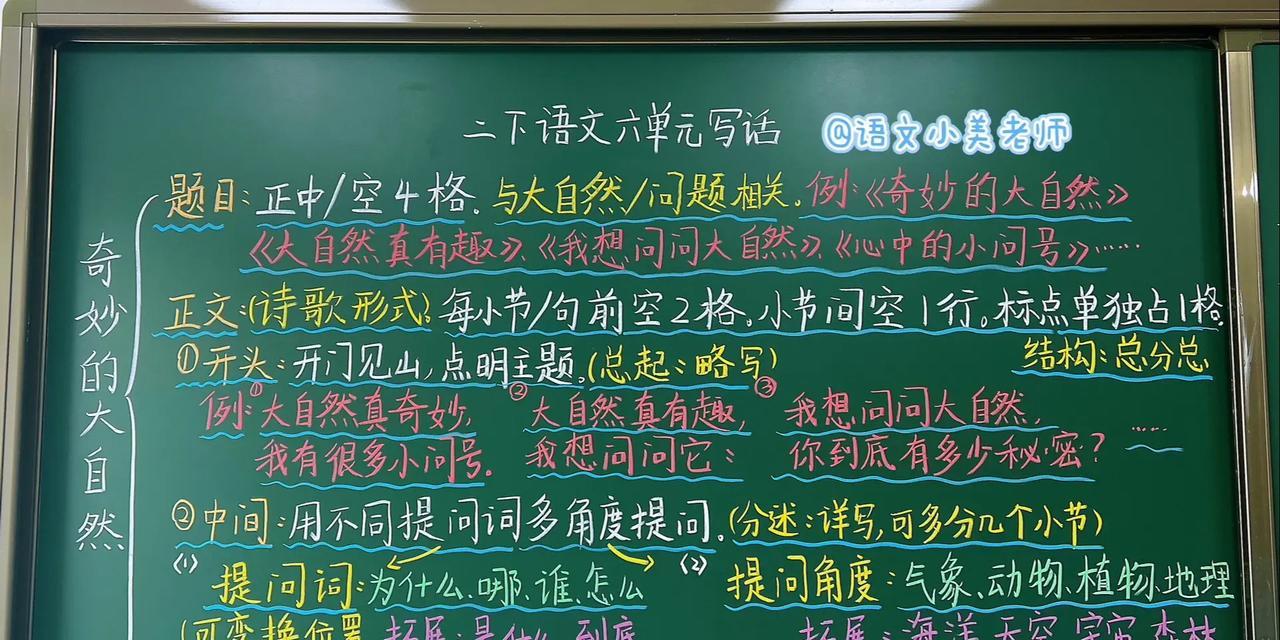 二下语文六单元写话 @语文小美老师
奇妙的大自然
题目:正中/空4格。与大自然/问题相关。例:《奇妙的大自然》
《大自然真有趣》、《我想问问大自然》、《心中的小问号》……
正文:(诗歌形式)每小节/句前空2格。小节间空1行。标点单独占1格。
①开头:开门见山,点明主题。(总起:略写) 结构:总分总
例:①大自然真奇妙, ②大自然真有趣, ③我想问问大自然,
我有很多小问号。 我想问问它: 你到底有多少秘密? ……
②中间:用不同提问词多角度提问。(分述:详写,可多分几个小节)
(1) (2)
提问词:为什么、哪、谁、怎么 提问角度:气象、动物、植物、地理
(可变换位置 拓展:是什么、到底 拓展:海洋、天空、宇宙、森林